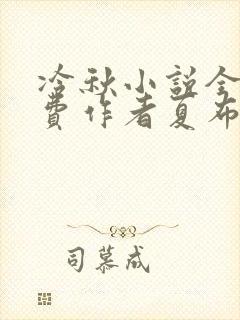 冷秋小说全
费作者夏布
司慕成